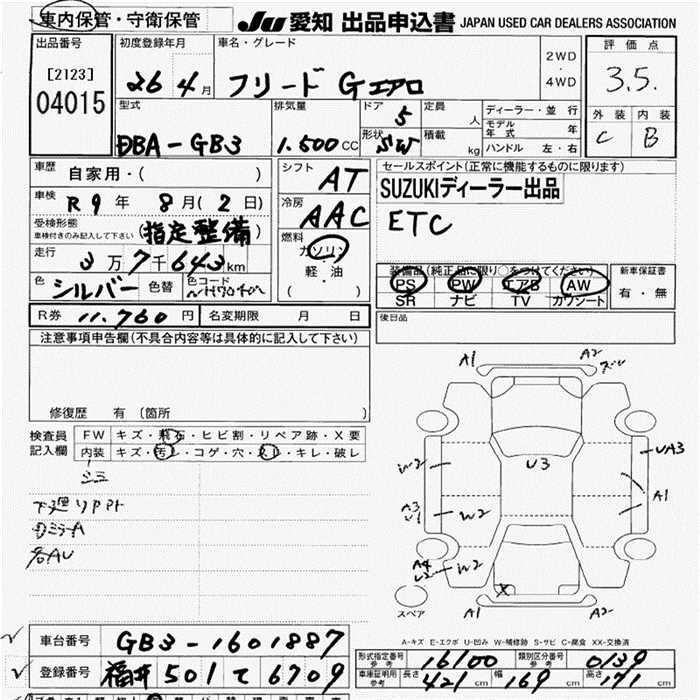 車内保管・守衛保管
JU 愛知 出品申込書 JAPAN USED CAR DEALERS ASSOCIATION
出品番号
[2123]
04015
初度登録年月
26 4月
車名・グレード
フリード Gエアロ
2WD
・
4WD
評価点
3.5.
外装 内装
C B
型式
DBA-GB3
排気量
1.500CC
ドア
5
形状
SW
定員
人
積載
kg
ディーラー・並行
モデル年式 年
ハンドル 左・右
車歴
自家用・( )
車検
R9年 8月(2日)
受検形態
車検付きのみ記入して下さい (指定整備)
走行
3万7千643km
色
シルバー
色替
色コード
NH704M
シフト
AT
冷房
AAC
燃料
ガソリン
軽・油
( )
セールスポイント(正常に機能するものに限ります)
SUZUKIディーラー出品
ETC
装備品(純正品に限り〇をつけてください)
PS PW エアB AW
SR ナビ TV カワシート
新車保証書
有・無
後日品
R券 11.760円
名変期限 月 日
注意事項申告欄(不具合内容等は具体的に記入して下さい)
修復歴 有(箇所 )
検査員
記入欄
FW キズ・飛石・ヒビ割・リペア跡・X要
内装 キズ・汚レ・コゲ・穴・スレ・キレ・破レ
シミ
下廻りサビ
各AU
A1 A2
U3
W2
UA3
A1
A3
U1
W2
A4
U2
W2
X
スペア
A1 A2
A-キズ E-エクボ U-凹み W-補修跡 S-サビ C-腐食 XX-交換済
車台番号 GB3-1601887
登録番号 福井501て6709
形式指定番号
参考
16100
類別区分番号
参考
0139
車庫証明用
参考
長さ 421cm 幅 169cm 高さ 171cm